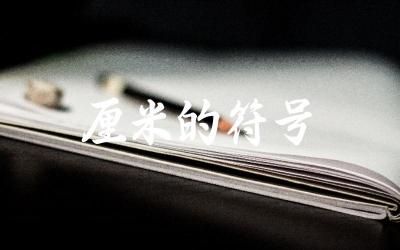 厘米的符号